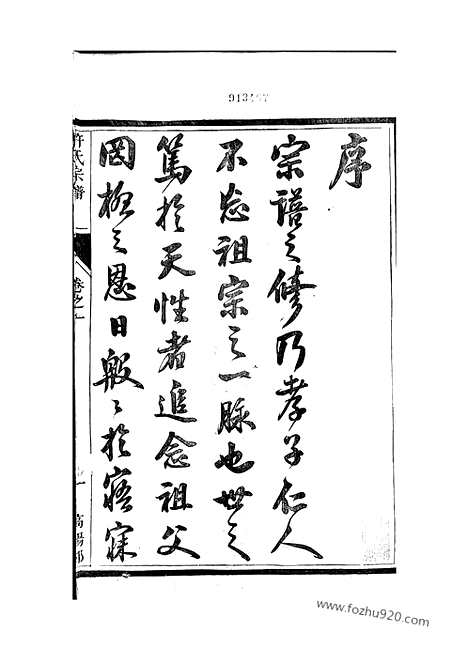 序
宗譜之修乃孝子仁人
不忘祖宗之一脉也世之
篤於天性者追念祖父
罔極之恩日殷殷於寤寐
許氏宗譜
卷之一
一
高陽郡
www.fozhu920.com